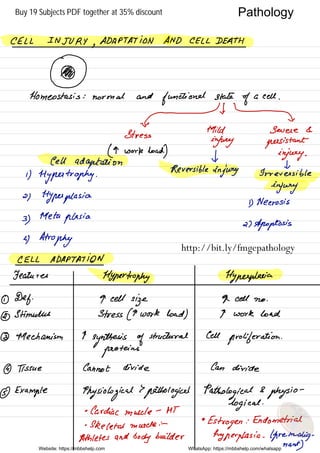 Buy 19 Subjects PDF together at 35% discount
Pathology
CELL INJURY, ADAPTATION AND CELL DEATH
Homeostasis: normal and functional state of a cell.
Stress
(↑ work load)
Mild
injury
Severe &
persistant
injury.
Cell adaptation
Reversible injury
Irreversible
injury
1) Hypertrophy.
2) Hyperplasia
3) Meta plasia
4) Atrophy
1) Necrosis
2) Apoptosis
http://bit.ly/fmgepathology
CELL ADAPTATION
Features Hypertrophy Hyperplasia
① Def. ↑ cell size ↑ cell no.
② Stimulus Stress (↑ work load) ↑ work load
③ Mechanism ↑ synthesis of structural proteins Cell proliferation.
④ Tissue Cannot divide Can divide
⑤ Example Physiological > pathological Pathological & physio-
logical.
• Cardiac muscle - HT
• Skeletal muscle:-
Athletes and body builder
• Estrogen: Endometrial
hyperplasia. (premalig-
nant)
Website: https://mbbshelp.com WhatsApp: https://mbbshelp.com/whatsapp